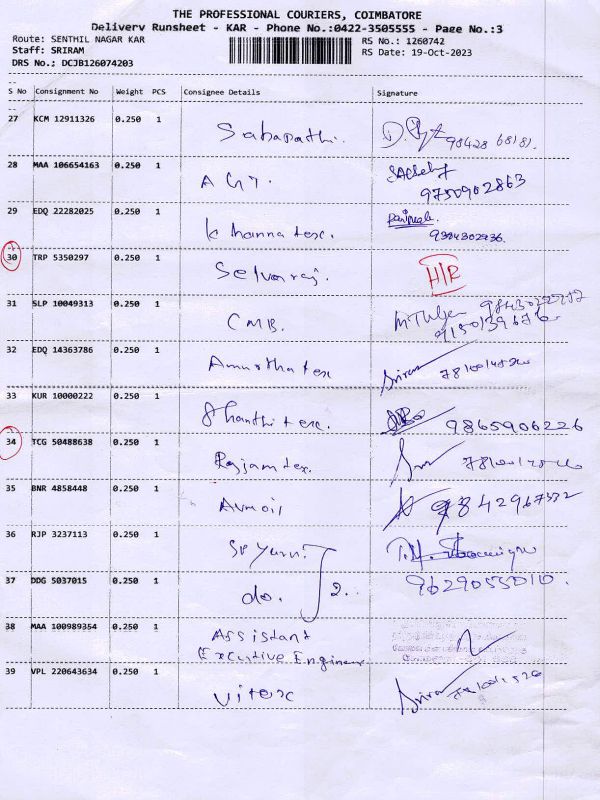 THE PROFESSIONAL COURIERS, COIMBATORE
Delivery Runsheet - KAR - Phone No.:0422-3505555 - Page No.:3
Route: SENTHIL NAGAR KAR
RS No.: 1260742
Staff: SRIRAM
RS Date: 19-Oct-2023
DRS No.: DCJB126074203
S No Consignment No Weight PCS Consignee Details Signature
27 KCM 12911326 0.250 1 Sabapathi. 98428 68181.
28 MAA 106654163 0.250 1 A G T. 9750902863
29 EDQ 22282025 0.250 1 K hanna tex. 9384302236.
30 TRP 5350297 0.250 1 Selvaraj. H/R
31 SLP 10049313 0.250 1 CMB.
32 EDQ 14363786 0.250 1 Amurtha tex Sriram
33 KUR 10000222 0.250 1 Shanthi tex. 9865906226
34 TCG 50488638 0.250 1 Rajam tex.
35 BNR 4858448 0.250 1
36 RJP 3237113 0.250 1
37 DDG 5037015 0.250 1 do. 2. 9629055010.
38 MAA 100989354 0.250 1 Assistant
Executive Engineer
39 VPL 220643634 0.250 1 vitex Sriram